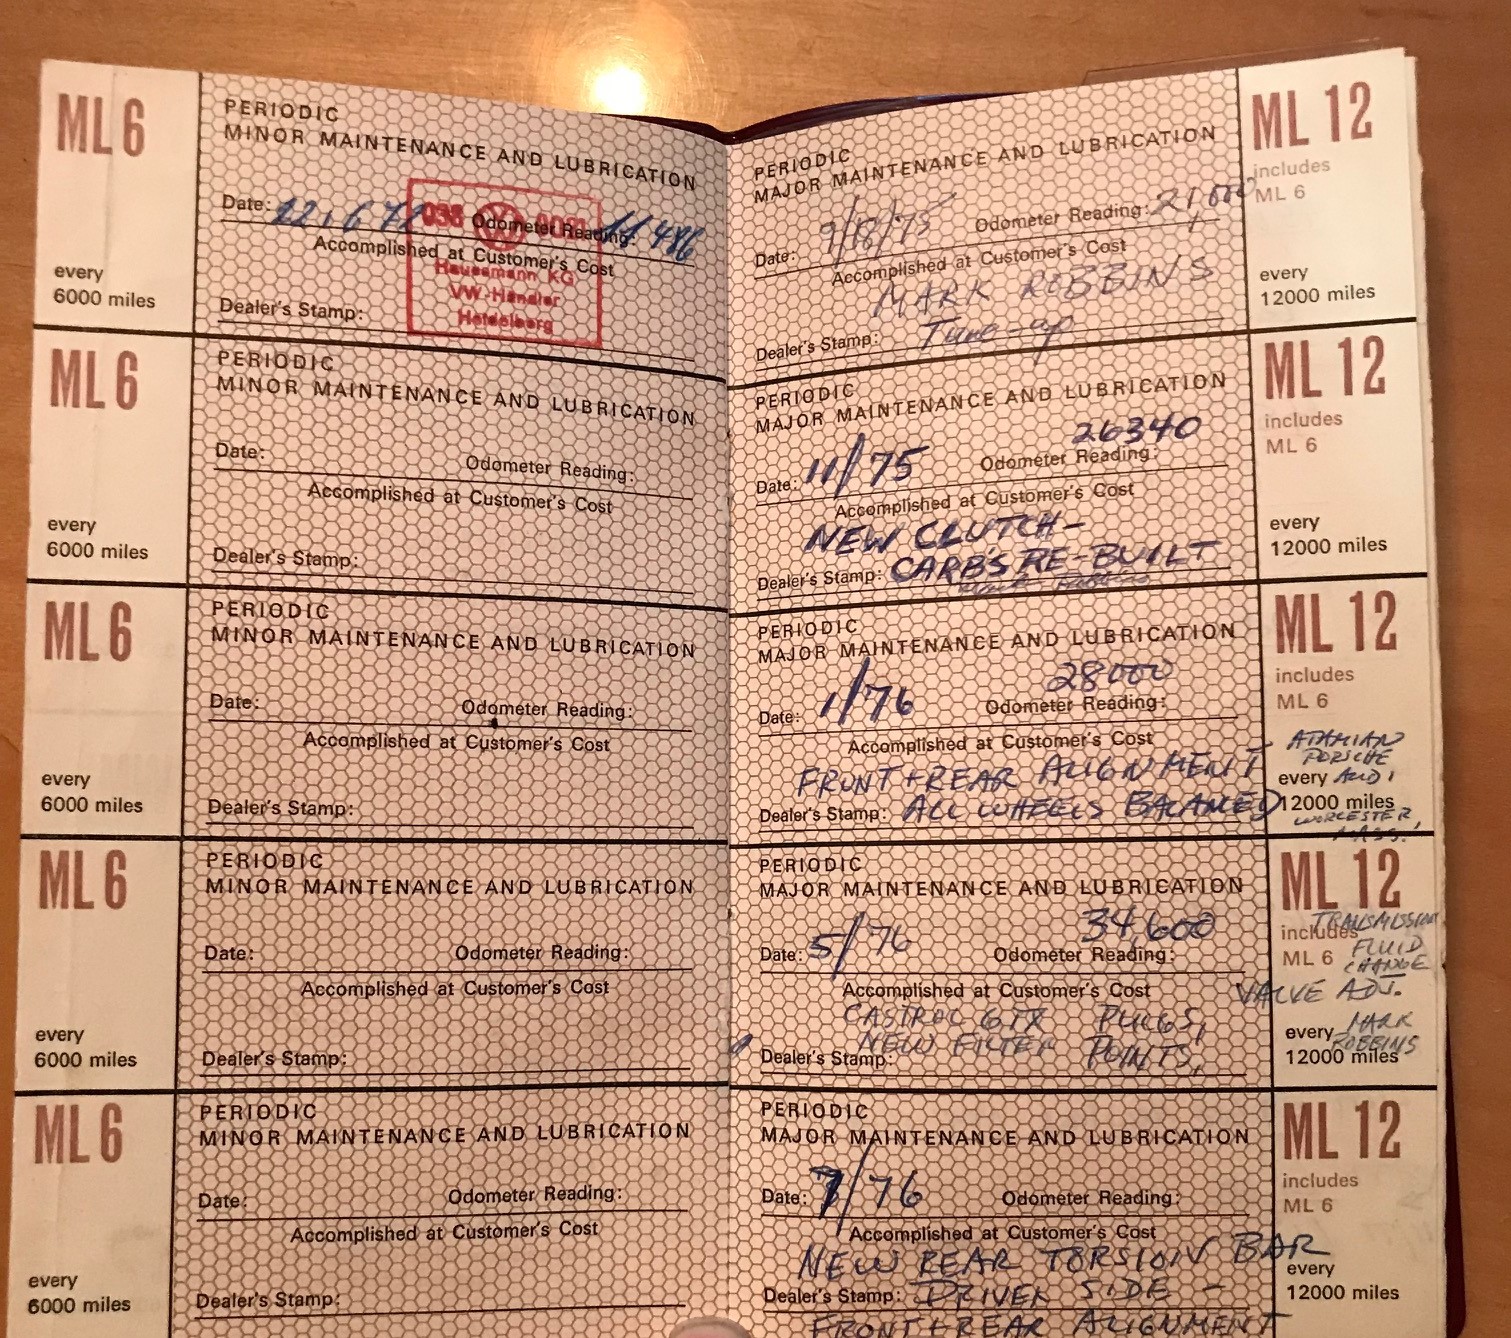 ML 6
PERIODIC
MINOR MAINTENANCE AND LUBRICATION
Date: Odometer Reading: 11486
038 0021
Accomplished at Customer's Cost
Hausmann KG
VW-Händler
Heidelberg
Dealer's Stamp:
every
6000 miles
ML 6
PERIODIC
MINOR MAINTENANCE AND LUBRICATION
Date: Odometer Reading:
Accomplished at Customer's Cost
Dealer's Stamp:
every
6000 miles
ML 6
PERIODIC
MINOR MAINTENANCE AND LUBRICATION
Date: Odometer Reading:
Accomplished at Customer's Cost
Dealer's Stamp:
every
6000 miles
ML 6
PERIODIC
MINOR MAINTENANCE AND LUBRICATION
Date: Odometer Reading:
Accomplished at Customer's Cost
Dealer's Stamp:
every
6000 miles
ML 6
PERIODIC
MINOR MAINTENANCE AND LUBRICATION
Date: Odometer Reading:
Accomplished at Customer's Cost
Dealer's Stamp:
every
6000 miles
PERIODIC
MAJOR MAINTENANCE AND LUBRICATION
Date: 9/18/75 Odometer Reading: 21,000
Accomplished at Customer's Cost
MARK ROBBINS
Dealer's Stamp: Tune-up
ML 12
includes
ML 6
every
12000 miles
PERIODIC
MAJOR MAINTENANCE AND LUBRICATION
26340
Date: 11/75 Odometer Reading:
Accomplished at Customer's Cost
NEW CLUTCH-
Dealer's Stamp: CARB'S RE-BUILT
Mark Robbins
ML 12
includes
ML 6
every
12000 miles
PERIODIC
MAJOR MAINTENANCE AND LUBRICATION
28000
Date: 1/76 Odometer Reading:
Accomplished at Customer's Cost
FRONT + REAR ALIGNMENT
Dealer's Stamp: ALL WHEELS BALANCED
ML 12
includes
ML 6
ATAMIAN
PORSCHE
every AUDI
12000 miles
WORCESTER,
MASS.
PERIODIC
MAJOR MAINTENANCE AND LUBRICATION
34,600
Date: 5/76 Odometer Reading:
Accomplished at Customer's Cost
CASTROL GTX PLUGS,
NEW FILTER POINTS,
Dealer's Stamp:
ML 12
TRANSMISSION
includes FLUID
ML 6 CHANGE
VALVE ADJ.
every MARK
ROBBINS
12000 miles
PERIODIC
MAJOR MAINTENANCE AND LUBRICATION
Date: 7/76 Odometer Reading:
Accomplished at Customer's Cost
NEW REAR TORSION BAR
Dealer's Stamp: DRIVER SIDE -
FRONT + REAR ALIGNMENT
ML 12
includes
ML 6
every
12000 miles